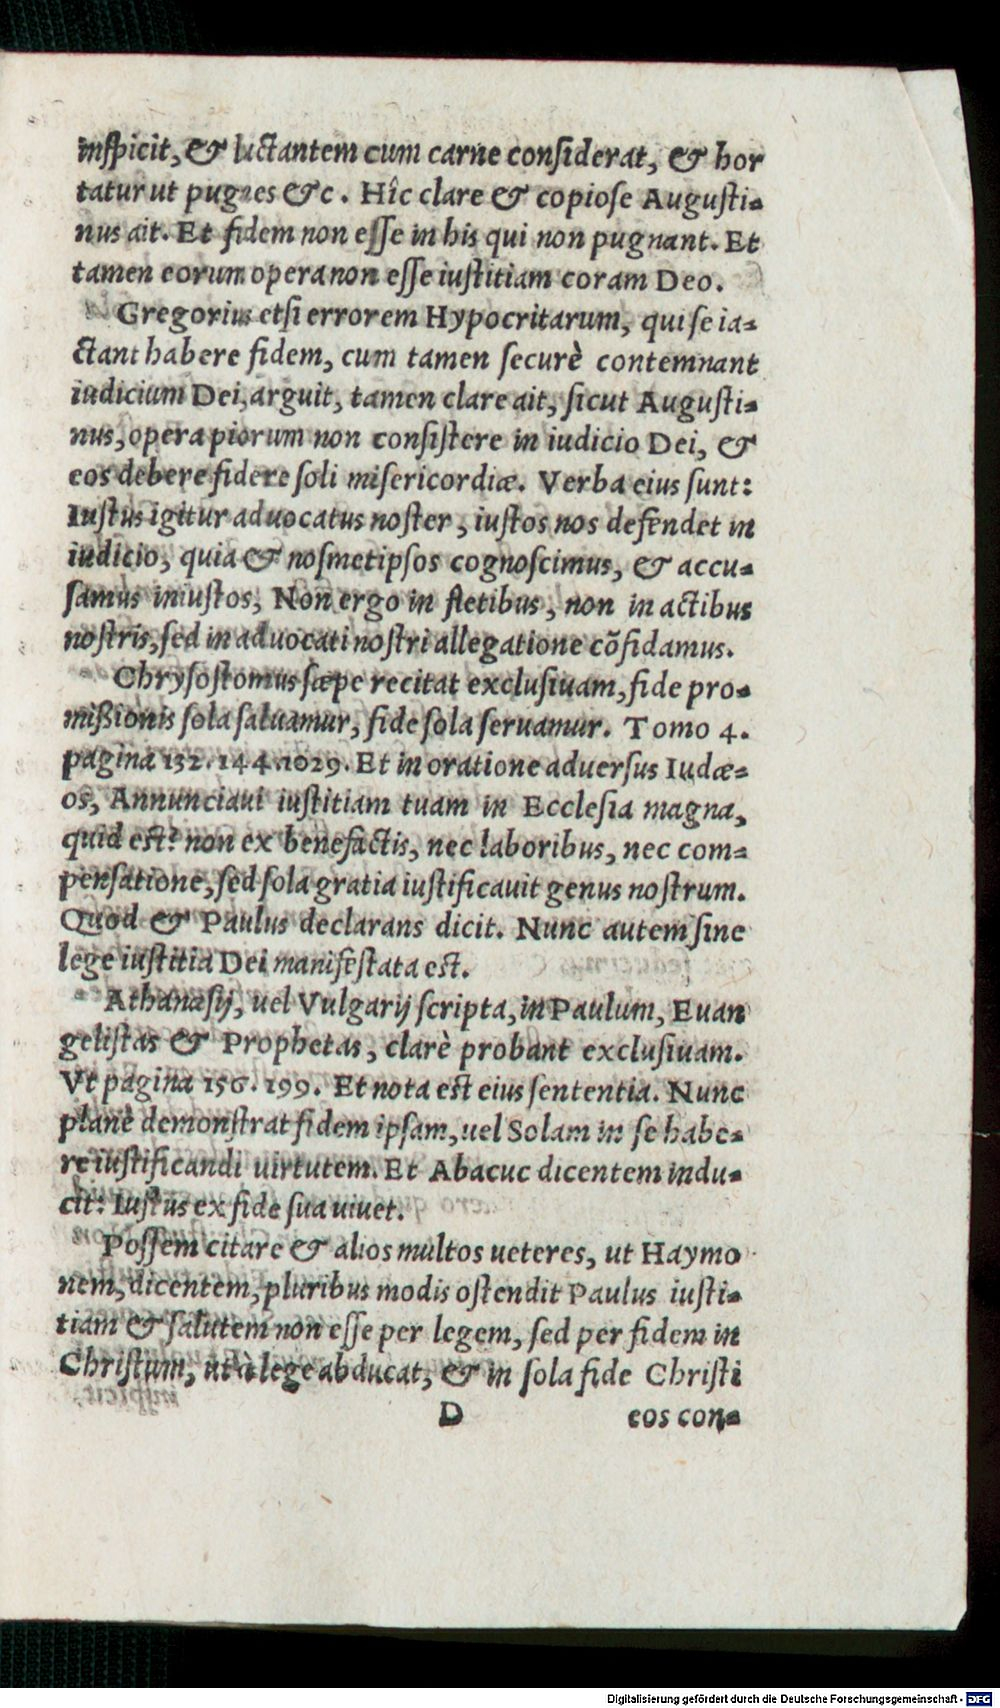 inſpicit, & luctantem cum carne conſiderat, & hor
tatur ut pugnes &c. Hîc clare & copioſe Auguſti-
nus ait. Et fidem non eſſe in his qui non pugnant. Et
tamen eorum opera non eſſe iuſtitiam coram Deo.
Gregorius etſi errorem Hypocritarum, qui ſe ia-
ctant habere fidem, cum tamen ſecurè contemnant
iudicium Dei, arguit, tamen clare ait, ſicut Auguſti-
nus, opera piorum non conſiſtere in iudicio Dei, &
eos debere fidere ſoli miſericordiæ. Verba eius ſunt:
Iuſtus igitur aduocatus noſter, iuſtos nos defendet in
iudicio, quia & noſmetipſos cognoſcimus, & accu-
ſamus iniuſtos, Non ergo in fletibus, non in actibus
noſtris, ſed in aduocati noſtri allegatione cõfidamus.
Chryſoſtomus ſæpe recitat excluſiuam, fide pro-
mißionis ſola ſaluamur, fide ſola ſeruamur. Tomo 4.
pagina 132. 144. 1029. Et in oratione aduerſus Iudæ-
os, Annunciaui iuſtitiam tuam in Eccleſia magna,
quid est? non ex benefactis, nec laboribus, nec com-
penſatione, ſed ſola gratia iuſtificauit genus noſtrum.
Quod & Paulus declarans dicit. Nunc autem ſine
lege iuſtitia Dei manifeſtata est.
Athanaſij, uel Vulgarij ſcripta, in Paulum, Euan
geliſtas & Prophetas, clarè probant excluſiuam.
Vt pagina 156. 199. Et nota est eius ſententia. Nunc
planè demonſtrat fidem ipſam, uel Solam in ſe habe-
re iuſtificandi uirtutem. Et Abacuc dicentem indu-
cit: Iuſtus ex fide ſua uiuet.
Poſſem citare & alios multos ueteres, ut Haymo
nem, dicentem, pluribus modis oſtendit Paulus iuſti-
tiam & ſalutem non eſſe per legem, ſed per fidem in
Chriſtum, ut à lege abducat, & in ſola fide Chriſti
D eos con-
Digitalisierung gefördert durch die Deutsche Forschungsgemeinschaft - DFG